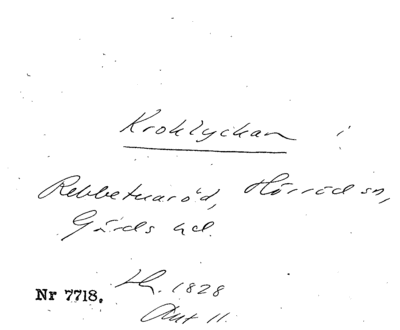 Kroklyckan i
Rebbetuaröd, Hörröd sn,
Gärds hd.
Nr 7718. Lh. 1828
Akt 11.